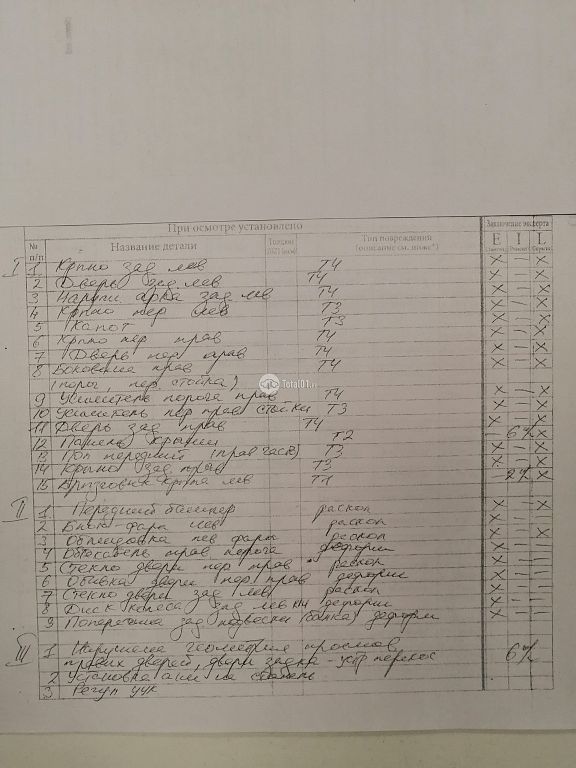 При осмотре установлено
Заключение эксперта
№ п/п Название детали Толщина Тип повреждения (описание см. ниже*) E I L
I 1 Крыло зад лев Т4 X — X
2 Дверь зад лев Т4 X — X
3 Наружн арка зад лев Т4 X — X
4 Крыло пер лев Т3 X — X
5 Капот Т3 X — X
6 Крыло пер прав Т4 X — X
7 Дверь пер прав Т4 X — X
8 Боковина прав Т4 X — X
(порог, пер стойка)
9 Усилитель порога прав Т4 X — X
10 Усилитель пер прав стойки Т3 X — X
11 Дверь зад прав Т4 X — X
12 Панель крыши Т2 — X
13 Пол передний (прав часть) Т3 X — X
14 Крыло зад прав Т3 X
15 Брызговик крыла лев X — X
II 1 Передний бампер раскол X — X
2 Блок-фара лев раскол X
3 Облицовка лев фары раскол X — X
4 Обтекатель прав порога деформ X
5 Стекло двери пер прав раскол X
6 Обивка двери пер прав деформ X
7 Стекло двери зад лев раскол X
8 Диск колеса зад лев деформ X
9 Поперечина зад подвески (балка) деформ X
III 1 Нарушена геометрия проемов
правых дверей, двери задка - устр перекос
2 Установка а/м на стапель
3 Регул УУК
Total01.ru